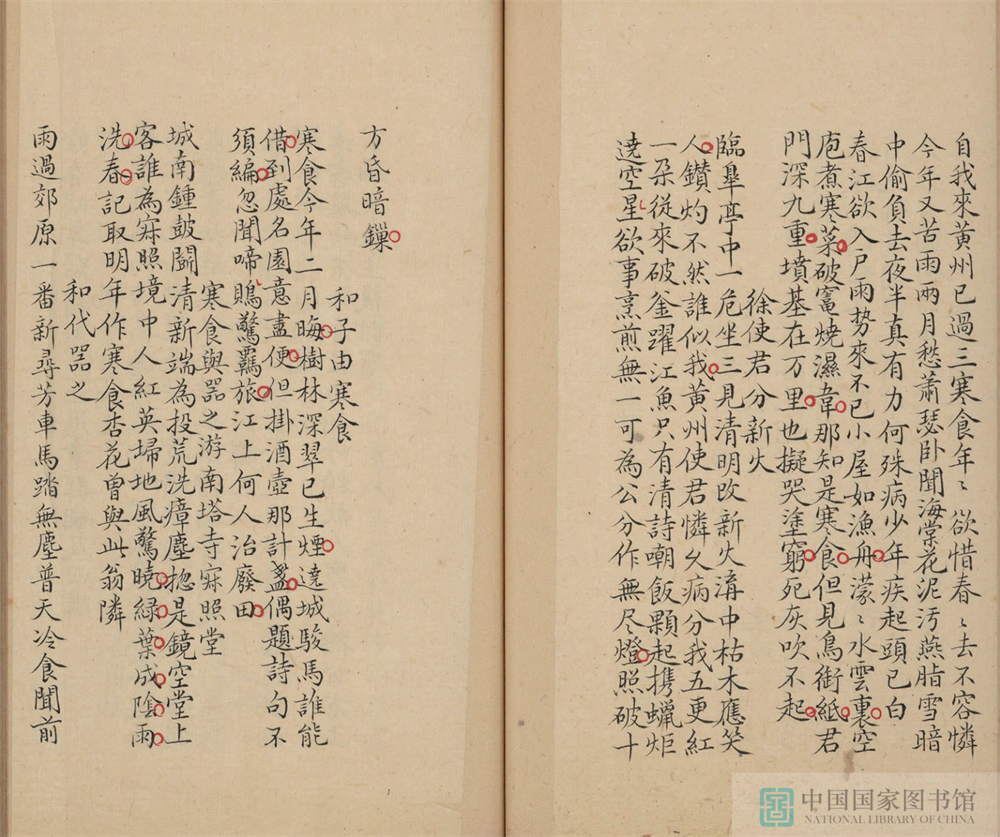 自我來黄州已過三寒食年〻欲惜春〻去不容憐
今年又苦雨兩月愁蕭瑟卧聞海棠花泥汚燕脂雪暗
中偷負去夜半真有力何殊病少年疾起頭已白
春江欲入戸雨勢來不已小屋如漁舟濛〻水雲裏空
庖煮寒菜破竃燒濕葦那知是寒食但見烏銜紙君
門深九重墳墓在万里也擬哭塗窮死灰吹不起
徐使君分新火
臨臯亭中一危坐三見清明改新火溝中枯木應笑
人鑚灼不然誰似我黄州使君憐久病分我五更紅
一朶從來破釜躍江魚只有清詩嘲飯顆起攜蠟炬
遶空星欲事烹煎無一可為公分作無尽燈照破十
方昏暗鏁
和子由寒食
寒食今年二月晦樹林深翠已生煙遶城駿馬誰能
借到處名園意盡便但掛酒壺那計盞偶題詩句不
須編忽聞啼鵙驚羈旅江上何人治廢田
寒食與噐之游南塔寺寂照堂
城南鍾皷鬭清新端為投荒洗瘴塵揔是鏡空堂上
客誰為寂照境中人紅英掃地風驚曉緑葉成陰雨
洗春記取明年作寒食杏花曽與此翁隣
和代噐之
雨過郊原一番新尋芳車馬踏無塵普天冷食聞前
中国国家图书馆
NATIONAL LIBRARY OF CHINA